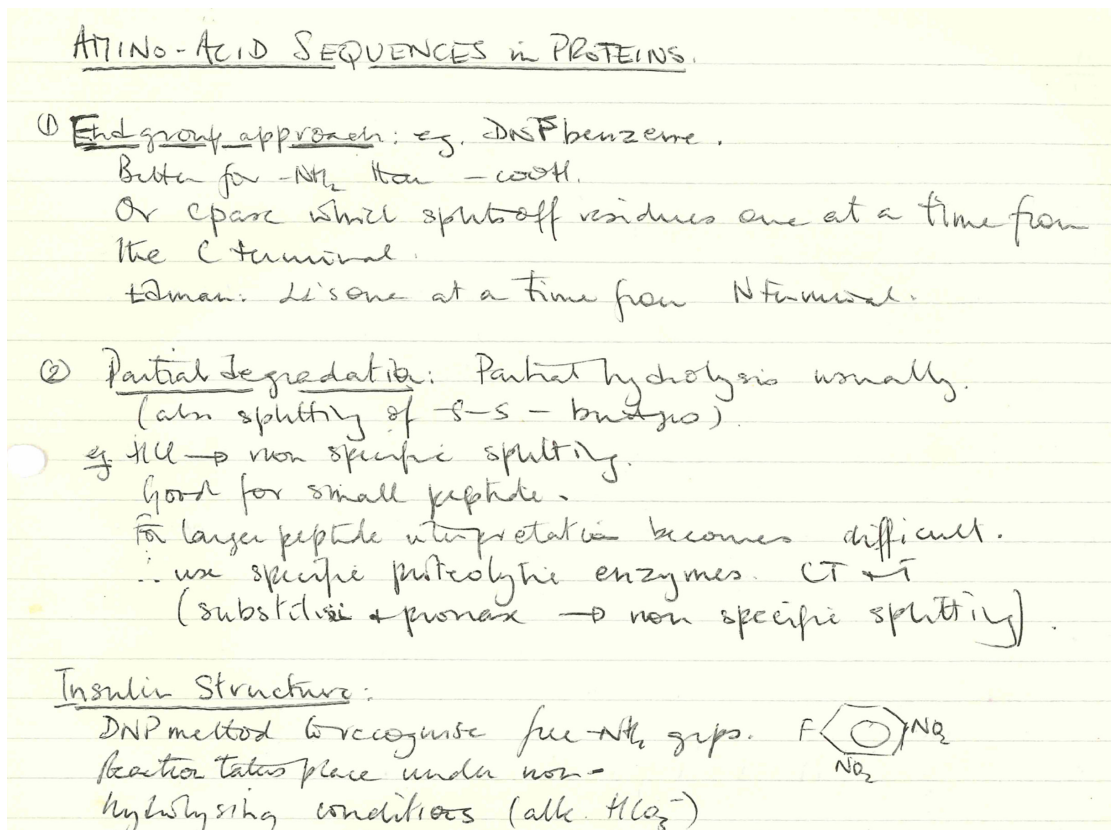 AMINO-ACID SEQUENCES in PROTEINS.
① End group approach: eg. DNFbenzene.
Better for -NH₂ than -COOH.
Or cpase which splits off residues one at a time from
the C terminal.
Edman: one at a time from N terminal.
② Partial degradation: Partial hydrolysis usually.
(also splitting of -S-S- bridges)
eg. HCl → non specific splitting.
Good for small peptide.
For larger peptide interpretation becomes difficult.
∴ use specific proteolytic enzymes. CT + T
(substilisi + pronase → non specific splitting).
Insulin Structure:
DNP method to recognise free -NH₂ grps. F NO₂
Reaction takes place under non- NO₂
hydrolysing conditions (alk. HCO₃⁻)